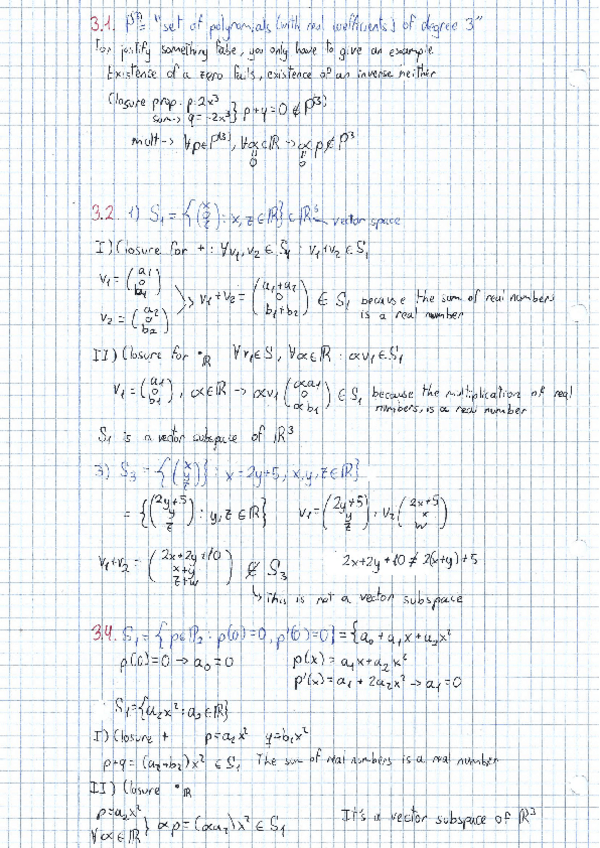 3.1. P⁽³⁾ = "set of polynomials (with real coefficients) of degree 3"
To justify something false, you only have to give an example
Existence of a zero fails, existence of an inverse neither
Closure prop: p: 2x³
sum -> q = -2x³ } p+q = 0 ∉ P⁽³⁾
mult -> ∀p∈P⁽³⁾, ∀α∈ℝ -> α p ∉ P³
0 0
3.2. 1) S₁ = {(x 0 z) : x, z ∈ ℝ} ⊂ ℝ³ -> vector space
I) Closure for + : ∀v₁, v₂ ∈ S₁ : v₁+v₂ ∈ S₁
v₁ = (a₁ 0 b₁)
v₂ = (a₂ 0 b₂) >> v₁+v₂ = (a₁+a₂ 0 b₁+b₂) ∈ S₁ because the sum of real numbers
is a real number
II) Closure for ·ℝ ∀v₁∈S, ∀α∈ℝ : αv₁∈S₁
v₁ = (a₁ 0 b₁), α∈ℝ -> αv₁ (αa₁ 0 αb₁) ∈ S₁ because the multiplication of real
numbers, is a real number
S₁ is a vector subspace of ℝ³
3) S₃ = {(x y z)} : x = 2y+5, x, y, z ∈ ℝ}
= {(2y+5 y z) : y, z ∈ ℝ} v₁ = (2y+5 y z), v₂ (2x+5 x w)
v₁+v₂ = (2x+2y+10 x+y z+w) ∉ S₃ 2x+2y+10 ≠ 2(x+y)+5
↳ this is not a vector subspace
3.4. S₁ = { p∈P₂ : p(0)=0, p'(0)=0} = {a₀+a₁x+a₂x²
p(0)=0 -> a₀=0 p(x) = a₁x+a₂x²
p'(x) = a₁ + 2a₂x² -> a₁=0
S₁={a₂x² : a₂∈ℝ}
I) Closure + p=a₂x² q=b₂x²
p+q = (a₂+b₂)x² ∈ S₁ The sum of real numbers is a real number
II) Closure ·ℝ
p=a₂x²
∀α∈ℝ } αp=(αa₂)x² ∈ S₁ It's a vector subspace of ℝ³